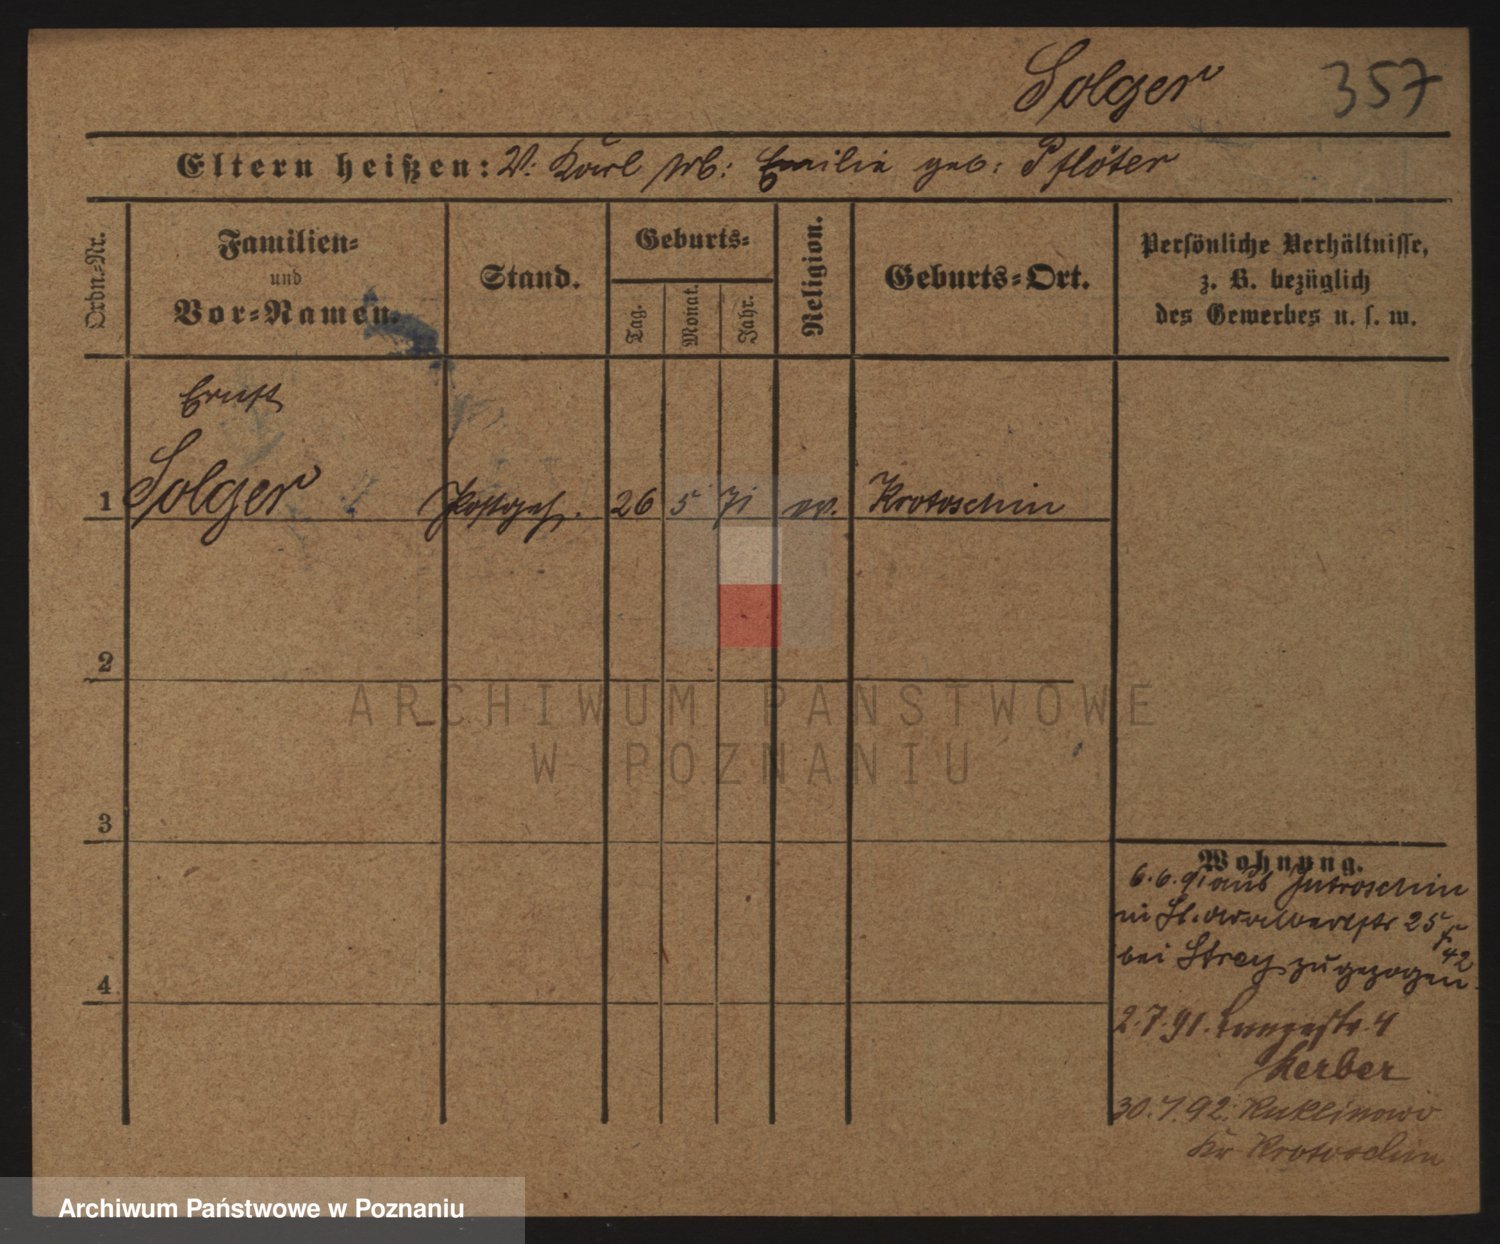 Solger 357
Eltern heißen: V: Karl M: Emilie geb: Pflöter
Ordn.-Nr.
Familien-
und
Vor-Namen.
Stand.
Geburts-
Tag.
Monat.
Jahr.
Religion.
Geburts-Ort.
Persönliche Verhältnisse,
z. B. bezüglich
des Gewerbes u. s. w.
Ernst
1 Solger Postgeh. 26 5 71 ev. Krotoschin
2
3
4
Wohnung.
6.6.91 aus Jutroschin
in St. Adalbertstr 25
bei Stroy zugezogen
2.7.91. Langestr. 4
Kerber
30.7.92. Kuklinowo
Kr Krotoschin
ARCHIWUM PAŃSTWOWE
W POZNANIU
Archiwum Państwowe w Poznaniu